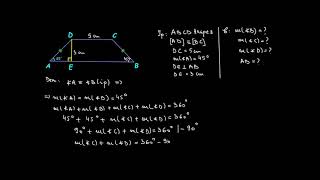 D 5 cm C
3 cm
45°
A E B
Ip: ABCD trapez
[AD] ≡ [BC]
DC = 5 cm
m(∢A) = 45°
DE ⊥ AB
DE = 3 cm
m(∢B) = ?
m(∢C) = ?
m(∢D) = ?
AD = ?
Dem: ∢A ≡ ∢B (ip) ⇒
⇒ m(∢A) = m(∢B) = 45°
m(∢A) + m(∢B) + m(∢C) + m(∢D) = 360°
45° + 45° + m(∢C) + m(∢D) = 360°
90° + m(∢C) + m(∢D) = 360° | - 90°
m(∢C) + m(∢D) = 360° - 90